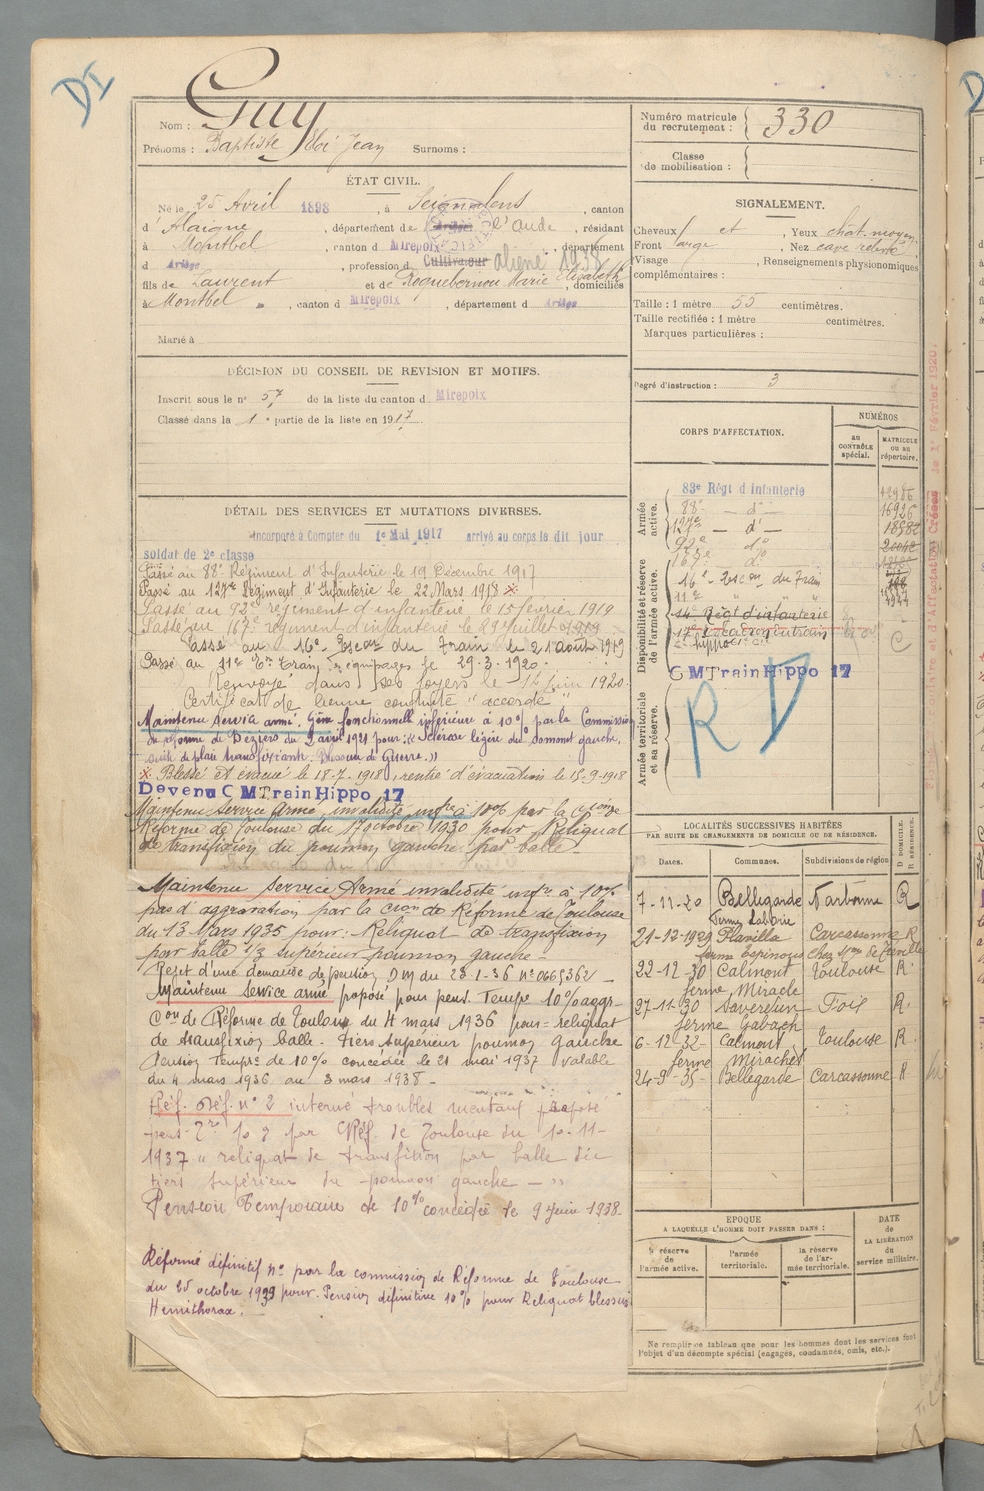 DI
Guy
Nom :
Prénoms : Baptiste Eloi Jean Surnoms :
ÉTAT CIVIL.
Né le 25 Avril 1898 , à Seignalens , canton
d' Alaigne , département de Ariège l'Aude , résidant
à Montbel , canton d Mirepoix , département
d Ariège , profession d Cultivateur aliéné 1938
fils de Laurent et de Roquebernou Marie Elizabeth , domiciliés
à Montbel , canton d Mirepoix , département d Ariège
Marié à
DÉCISION DU CONSEIL DE REVISION ET MOTIFS.
Inscrit sous le n° 57 de la liste du canton d Mirepoix
Classé dans la 1e partie de la liste en 1917
DÉTAIL DES SERVICES ET MUTATIONS DIVERSES.
Incorporé à Compter du 1e Mai 1917 arrivé au corps le dit jour
soldat de 2e classe
Passé au 88e Régiment d'Infanterie le 19 Décembre 1917
Passé au 127ème Régiment d'Infanterie le 22 Mars 1918 x
Passé au 92e régiment d'infanterie le 15 février 1919
Passé au 167e régiment d'infanterie le 29 Juillet 1919
Passé au 16e Escon du Train le 21 août 1919
Passé au 11e Con Train équipages le 29.3.1920.
Renvoyé dans ses foyers le 14 Juin 1920.
Certificat de bonne conduite "accordé"
Maintenu service armé, gêne fonctionnelle inférieure à 10% par la Commission
de réforme de Béziers du 2 avril 1921 pour: "Sclérose légère du sommet gauche,
suite de plaie transfixiante. Blessure de Guerre."
x Blessé et évacué le 18-7-1918, rentré d'évacuation le 15-9-1918
Devenu C M Train Hippo 17
Maintenu service armé, invalidité infre à 10% par la Con de
Réforme de Toulouse du 17 octobre 1930 pour Reliquat
de transfixion du poumon gauche par balle.
Maintenu Service Armé invalidité infre à 10%
pas d'aggravation par la Cion de Réforme de Toulouse
du 13 Mars 1935 pour: Reliquat de transfixion
par balle 1/3 supérieur poumon gauche.
Rejet d'une demande de pension DM du 23-1-36 N° 0665362
Maintenu Service armé proposé pour pens. Tempre 10% aggr-
Con de Réforme de Toulouse du 4 mars 1936 pour = reliquat
de transfixion balle tiers supérieur poumon gauche
Pension Tempre de 10% concédée le 21 mai 1937 valable
du 4 mars 1936 au 3 mars 1938 -
Réf. Déf. n° 2 interné troubles mentaux proposé
pens. Tre 10% par C Réf. de Toulouse du 10-11-
1937 " reliquat de transfixion par balle du
tiers supérieur du poumon gauche - "
Pension Temporaire de 10% concédée le 9 Juin 1938
Réformé définitif n° par la commission de Réforme de Toulouse
du 25 octobre 1939 pour. Pension définitive 10% pour Reliquat blessure
Hémithorax.
Numéro matricule du recrutement : 330
Classe de mobilisation :
SIGNALEMENT.
Cheveux et , Yeux chât. moyen
Front large , Nez cave relevé
Visage , Renseignements physionomiques
complémentaires :
Taille : 1 mètre 55 centimètres.
Taille rectifiée : 1 mètre centimètres.
Marques particulières :
Degré d'instruction : 3
CORPS D'AFFECTATION.
NUMÉROS
au CONTRÔLE spécial.
MATRICULE OU SE répertoire.
Armée active.
83e Régt d'infanterie
88e — d° — 16926
127e — d° —
92e d°
167e d°
Disponibilité et réserve de l'armée active.
16e Escon du Train
11e " "
Régt d'infanterie
C M Train Hippo 17
Armée territoriale et sa réserve.
R D
LOCALITÉS SUCCESSIVES HABITÉES
PAR SUITE DE CHANGEMENTS DE DOMICILE OU DE RÉSIDENCE.
Dates. Communes. Subdivisions de région D DOMICILE. R RÉSIDENCE.
7-11-20 Bellegarde Narbonne R
ferme Laborie
21-12-1929 Plavilla Carcassonne R
ferme Espinous chez
22-12-30 Calmont Toulouse R.
ferme Miracle
27-11-30 Saverdun Foix R.
ferme Gabach
6-12-32- Calmont Toulouse R.
ferme Miraches
24-9-35- Bellegarde Carcassonne R
EPOQUE
A LAQUELLE L'HOMME DOIT PASSER DANS :
la réserve de l'armée active.
l'armée territoriale.
la réserve de l'armée territoriale.
DATE de LA LIBÉRATION du service militaire.
Ne remplir ce tableau que pour les hommes dont les services font
l'objet d'un décompte spécial (engagés, condamnés, omis, etc.).